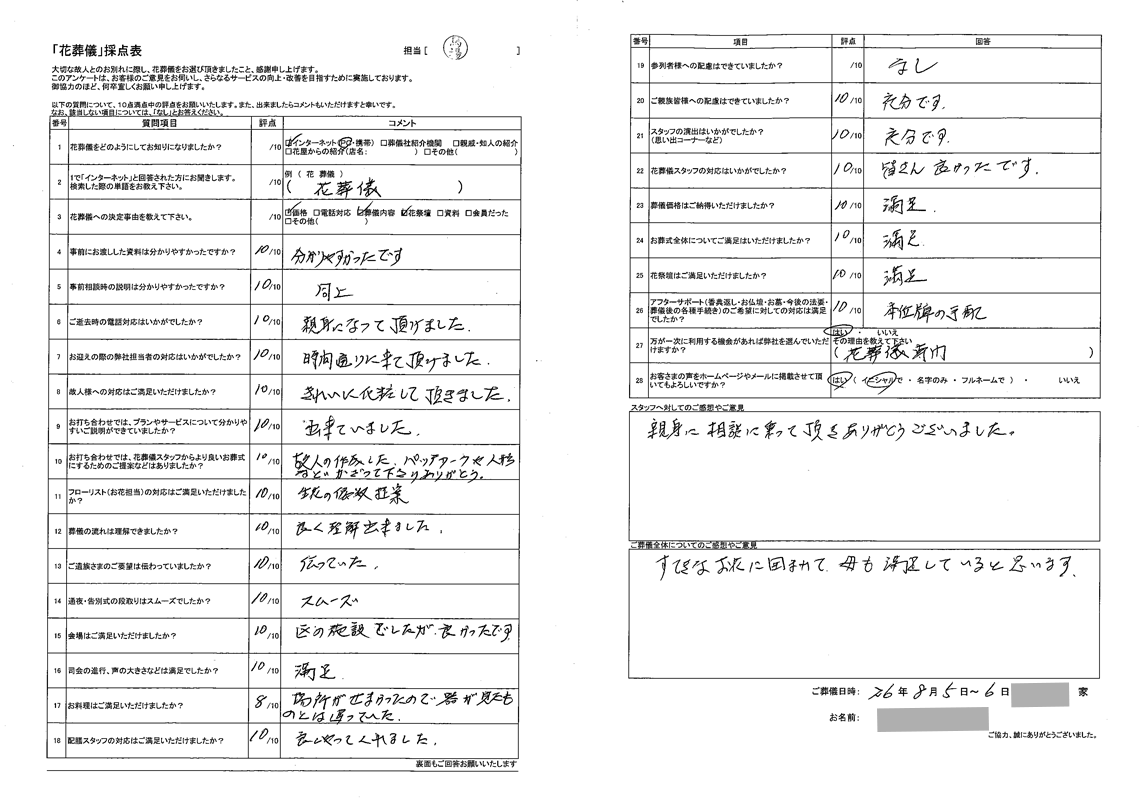 「花葬儀」採点表
担当［ ］
大切な故人とのお別れに際し、花葬儀をお選び頂きましたこと、感謝申し上げます。
このアンケートは、お客様のご意見をお伺いし、さらなるサービスの向上・改善を目指すために実施しております。
御協力のほど、何卒宜しくお願い申し上げます。
以下の質問について、10点満点中の評点をお願いいたします。また、出来ましたらコメントもいただけますと幸いです。
なお、該当しない項目については、「なし」とお答えください。
番号 質問項目 評点 コメント
1 花葬儀をどのようにしてお知りになりましたか？ /10 ☑インターネット（PC・携帯） □葬儀社紹介機関 □親戚・知人の紹介
□花屋からの紹介(店名： ) □その他( )
2 1で「インターネット」と回答された方にお聞きします。
検索した際の単語をお教え下さい。 /10 例（ 花 葬儀 ）
（ 花葬儀 ）
3 花葬儀への決定事由を教えて下さい。 /10 ☑価格 □電話対応 ☑葬儀内容 ☑花祭壇 □資料 □会員だった
□その他( )
4 事前にお渡しした資料は分かりやすかったですか？ 10/10 分かりやすかったです
5 事前相談時の説明は分かりやすかったですか？ 10/10 同上
6 ご逝去時の電話対応はいかがでしたか？ 10/10 親身になって頂けました。
7 お迎えの際の弊社担当者の対応はいかがでしたか？ 10/10 時間通りに来て頂けました。
8 故人様への対応はご満足いただけましたか？ 10/10 きれいに化粧して頂きました。
9 お打ち合わせでは、プランやサービスについて分かりやすいご説明ができていましたか？ 10/10 出来ていました。
10 お打ち合わせでは、花葬儀スタッフからより良いお葬式にするためのご提案などはありましたか？ 10/10 故人の作成した、パッチワークや人形
などいかざって下さりありがとう。
11 フローリスト（お花担当）の対応はご満足いただけましたか？ 10/10 生花の 提案
12 葬儀の流れは理解できましたか？ 10/10 良く理解出来ました。
13 ご遺族さまのご要望は伝わっていましたか？ 10/10 伝っていた。
14 通夜・告別式の段取りはスムーズでしたか？ 10/10 スムーズ
15 会場はご満足いただけましたか？ 10/10 区の施設でしたが、良かったです
16 司会の進行、声の大きさなどは満足でしたか？ 10/10 満足
17 お料理はご満足いただけましたか？ 8/10 場所がせまかったので器が見たも
のとは違っていた。
18 配膳スタッフの対応はご満足いただけましたか？ 10/10 良くやってくれました。
裏面もご回答お願いいたします
番号 項目 評点 回答
19 参列者様への配慮はできていましたか？ /10 なし
20 ご親族皆様への配慮はできていましたか？ 10/10 充分です。
21 スタッフの演出はいかがでしたか？
（思い出コーナーなど） 10/10 充分です。
22 花葬儀スタッフの対応はいかがでしたか？ 10/10 皆さん良かったです。
23 葬儀価格はご納得いただけましたか？ 10/10 満足。
24 お葬式全体についてご満足はいただけましたか？ 10/10 満足。
25 花祭壇はご満足いただけましたか？ 10/10 満足
26 アフターサポート（香典返し・お仏壇・お墓・今後の法要・葬儀後の各種手続き）のご希望に対しての対応は満足でしたか？ 10/10 本位牌の手配
27 万が一次に利用する機会があれば弊社を選んでいただけますか？ はい ・ いいえ
その理由を教えて下さい
（花葬儀専門 ）
28 お客さまの声をホームページやメールに掲載させて頂いてもよろしいですか？ はい （ イニシャルで ・ 名字のみ ・ フルネームで ） ・ いいえ
スタッフへ対してのご感想やご意見
親身に相談に乗って頂きありがとうございました。
ご葬儀全体についてのご感想やご意見
すてきなお花に囲まれて、母も満足していると思います。
ご葬儀日時： 26年 8月 5日〜 6日 家
お名前：
ご協力、誠にありがとうございました。